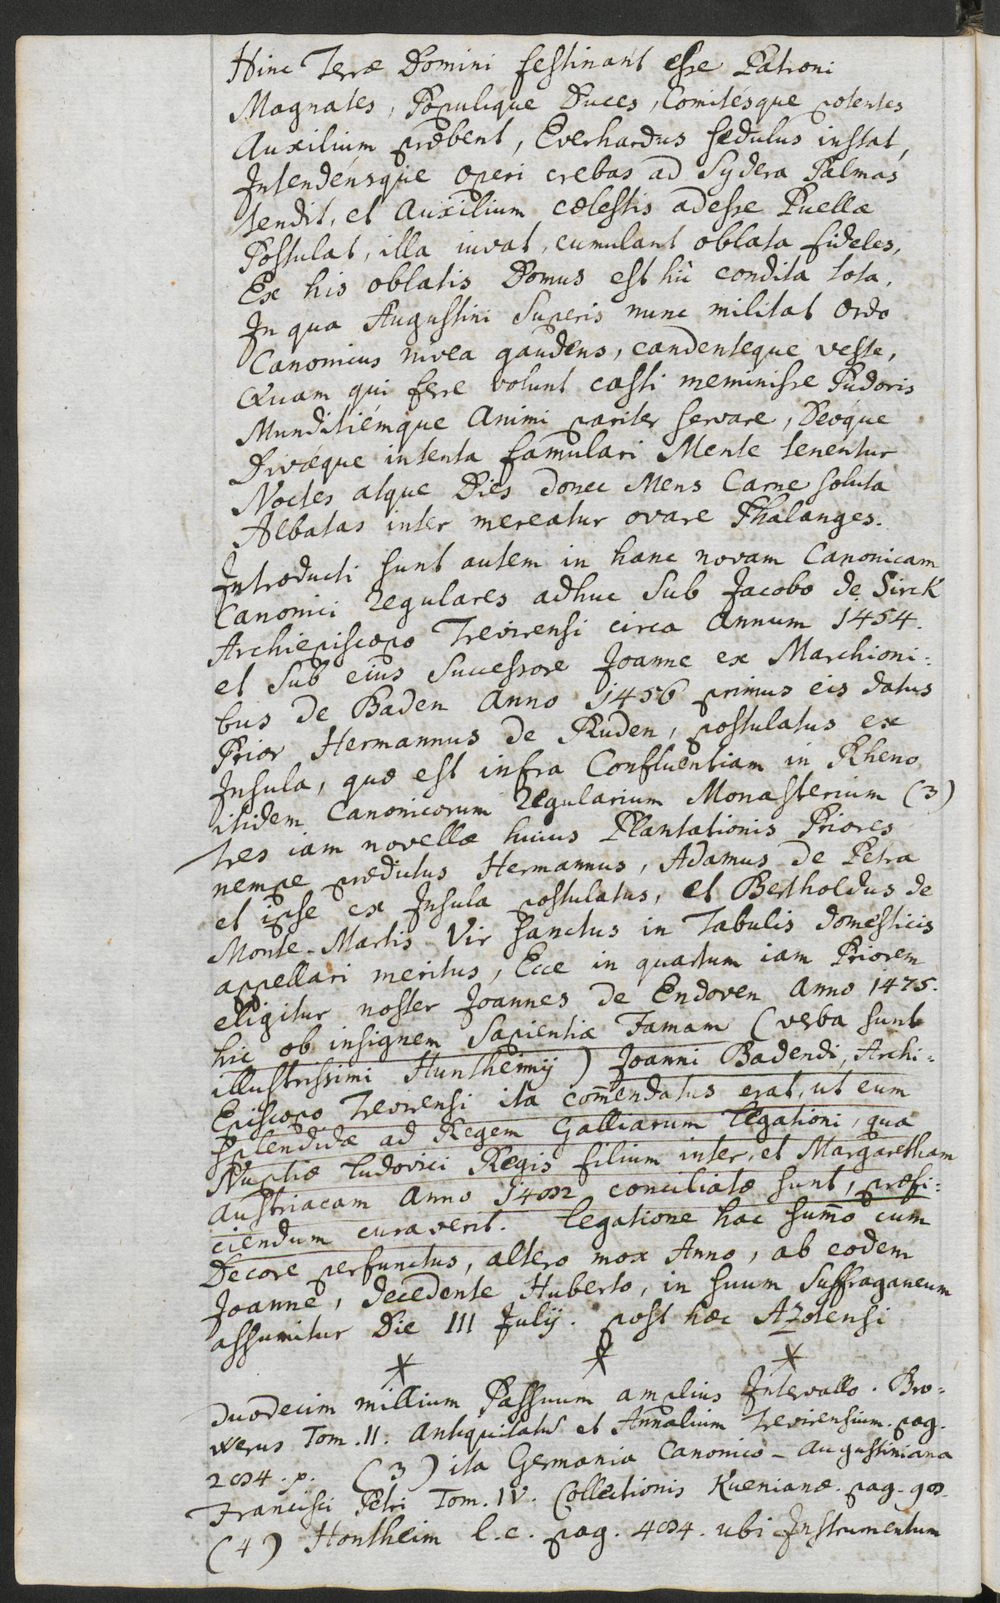 Hinc Terræ Domini festinant esse Patroni
Magnates, Populique Duces, Comitésque potentes
Auxilium præbent, Everhardus sedulus instat,
Intendensque operi crebas ad Sydera Palmas
tendit, et Auxilium cœlestis adesse Puellæ
Postulat, illa iuvat, cumulant oblata fideles,
Ex his oblatis Domus est hîc condita tota,
In qua Augustini Superis nunc militat Ordo
Canonicus nivea gaudens, candenteque veste,
Quam qui ferre volunt casti meminisse Pudoris
Munditiémque Animi pariter servare, Deoque
Divæque intenta famulari Mente tenentur
Noctes atque Dies donec Mens Carne soluta
Albatas inter mereatur ovare Phalanges.
Introducti sunt autem in hanc novam Canonicam
Canonici regulares adhuc sub Jacobo de Sirck
Archiepiscopo Trevirensi circa Annum 1454.
et sub eius Successore Joanne ex Marchioni:
bus de Baden Anno 1456 primus eis datus
Prior Hermannus de Ruden, postulatus ex
Insula, quæ est infra Confluentiam in Rheno
itidem Canonicorum Regularium Monasterium (3)
tres iam novellæ huius Plantationis Priores
nempe prædictus Hermannus, Adamus de Petra
et ipse ex Insula postulatus, et Bertholdus de
Monte-Martis Vir sanctus in Tabulis domesticis
appellari meritus, Ecce in quartum iam Priorem
eligitur noster Joannes de Endoven Anno 1475.
hic ob insignem Sapientiæ Famam (verba sunt
illustrissimi Hunthemij) Joanni Badendi, Archi:
Episcopo Trevirensi ita com̄endatus erat, ut eum
splendidæ ad Regem Galliarum legationi, qua
Nuptiæ Ludovici Regis filium inter, et Margaretham
Austriacam Anno 1482 conciliatæ sunt, præfi:
ciendum curaverit. legatione hac sum̄o cum
Decore perfunctus, altero mox Anno, ab eodem
Joanne, decedente Huberto, in suum Suffraganeum
assumitur Die III Julij. post hæc Azotensi
* * *
duodecim millium Passuum amplius Intervallo. Bro:
werus Tom. II. Antiquitatũ et Annalium Trevirensium. pag.
284. p. (3) ita Germania Canonico-Augustiniana
Francisci Petri Tom. IV. Collectionis Kuenianæ. pag. 98.
(4) Hontheim l. c. pag. 484. ubi Instrumentum